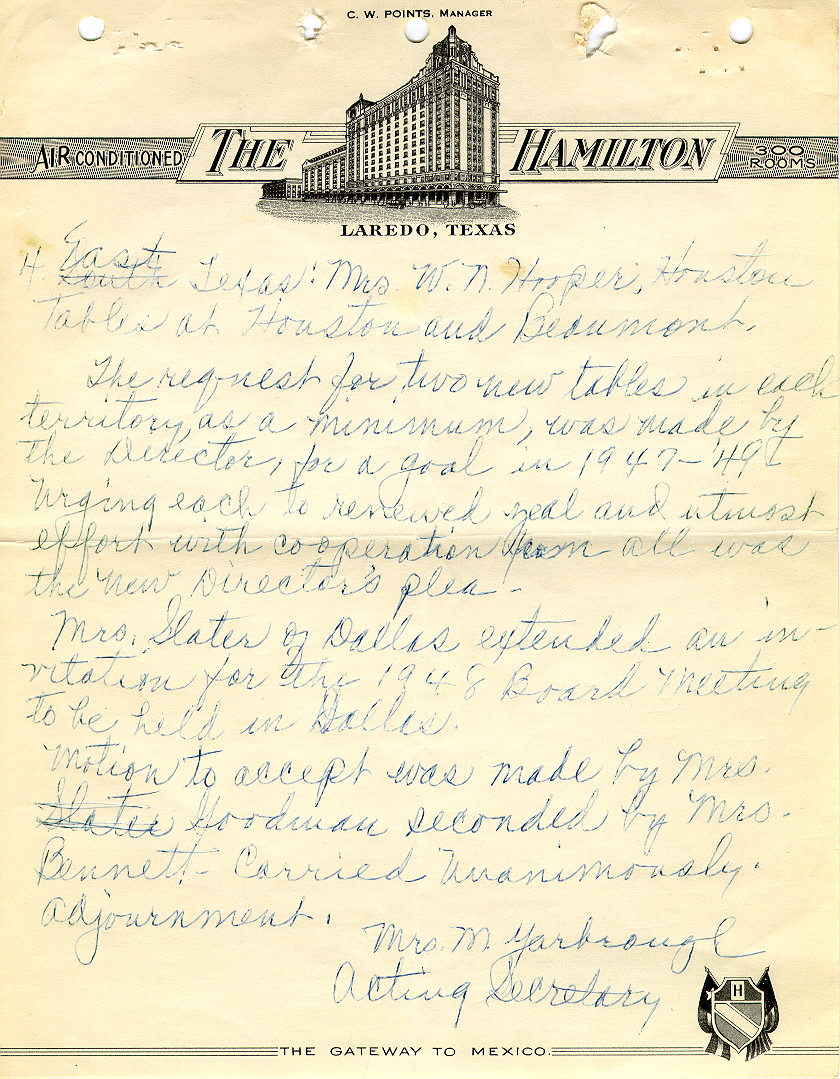 C. W. POINTS, MANAGER
AIR CONDITIONED THE HAMILTON 300 ROOMS
LAREDO, TEXAS
East
4. South Texas: Mrs. W. N. Hooper, Houston
Tables at Houston and Beaumont.
The request for two new tables in each
territory, as a minimum, was made by
the Director, for a goal in 1947-'49.
Urging each to renewed zeal and utmost
effort with cooperation from all was
the new Director's plea -
Mrs. Slater of Dallas extended an in-
vitation for the 1948 Board Meeting
to be held in Dallas.
Motion to accept was made by Mrs.
Slater Goodman seconded by Mrs.
Bennett - Carried Unanimously.
Adjournment.
Mrs. M. Yarbrough
Acting Secretary.
H
THE GATEWAY TO MEXICO.